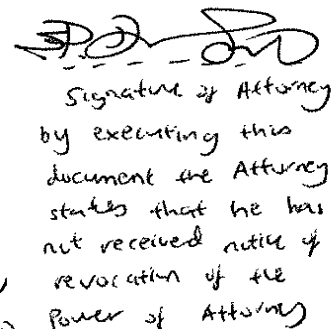 Signature of Attorney
by executing this
document the Attorney
states that he has
not received notice of
revocation of the
Power of Attorney